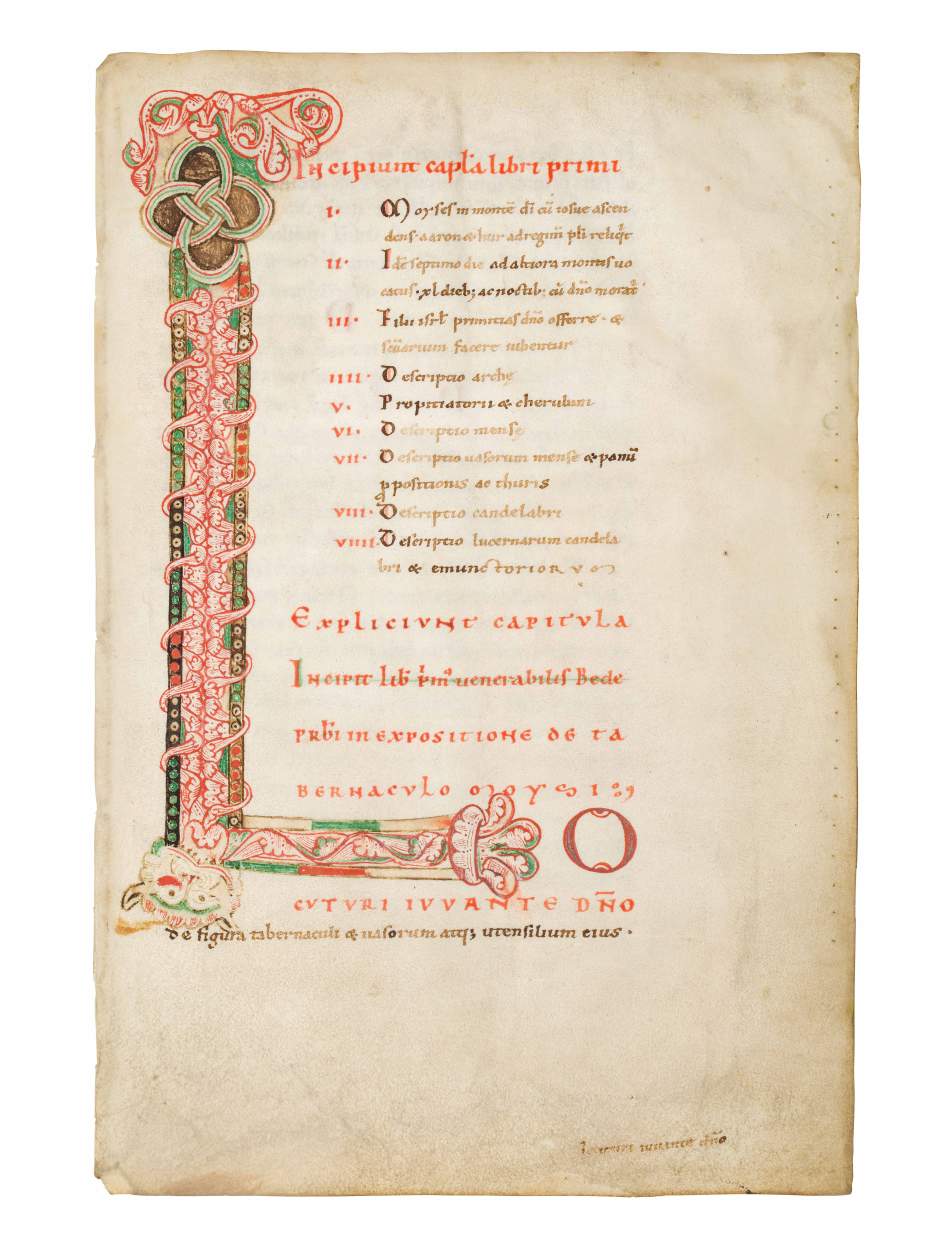 Incipiunt capl̄a libri primi
I· Moyses in montē dī cū iosue ascen
dens· aaron & hur ad regim̄ pl̄i reliq̄t
II· Idē septimo die ad altiora montis uo
catus· xl dieb; ac noctib; cū dn̄o morat᷑
III· Filii isrl̄ primitias dn̄o offerre· &
sc̄uarium facere iubentur
IIII· Descriptio arche
V· Propitiatorii & cherubim
VI· Descriptio mense
VII· Descriptio uasorum mense & panū
ꝓpositionis ac thuris
VIII· Descriptio candelabri
VIIII· Descriptio lucernarum candela
bri & emunctoriorum
Expliciunt capitula
Incipit lib̄ p̄mꝰ uenerabilis Bede
prb̄i in expositione de ta
bernaculo Moysi
LO
CUTURI IUUANTE DN̄O
de figura tabernaculi & uasorum atq; utensilium eius·
Locuturi iuuante dn̄o